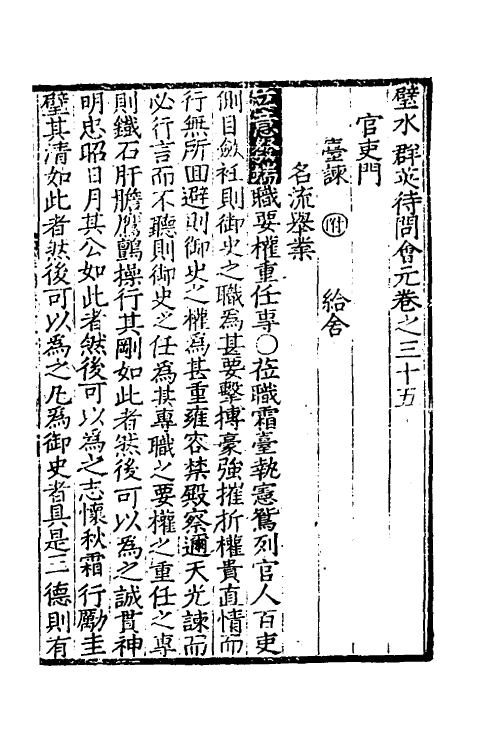 璧水群英待問會元卷之三十五
官吏門
臺諫 附 給舍
名流舉業
立意發端職要權重任專○莅職霜臺執憲鵷列官人百吏
側目斂袵則御史之職為甚要擊搏豪強摧折權貴直情而
行無所囬避則御史之權為甚重雍容禁殿察邇天光諫而
必行言而不聽則御史之任為甚專職之要權之重任之專
則鐵石肝膽鷹鸇操行其剛如此者然後可以為之誠貫神
明忠昭日月其公如此者然後可以為之志懷秋霜行勵圭
璧其清如此者然後可以為之凡為御史者具是二德則有